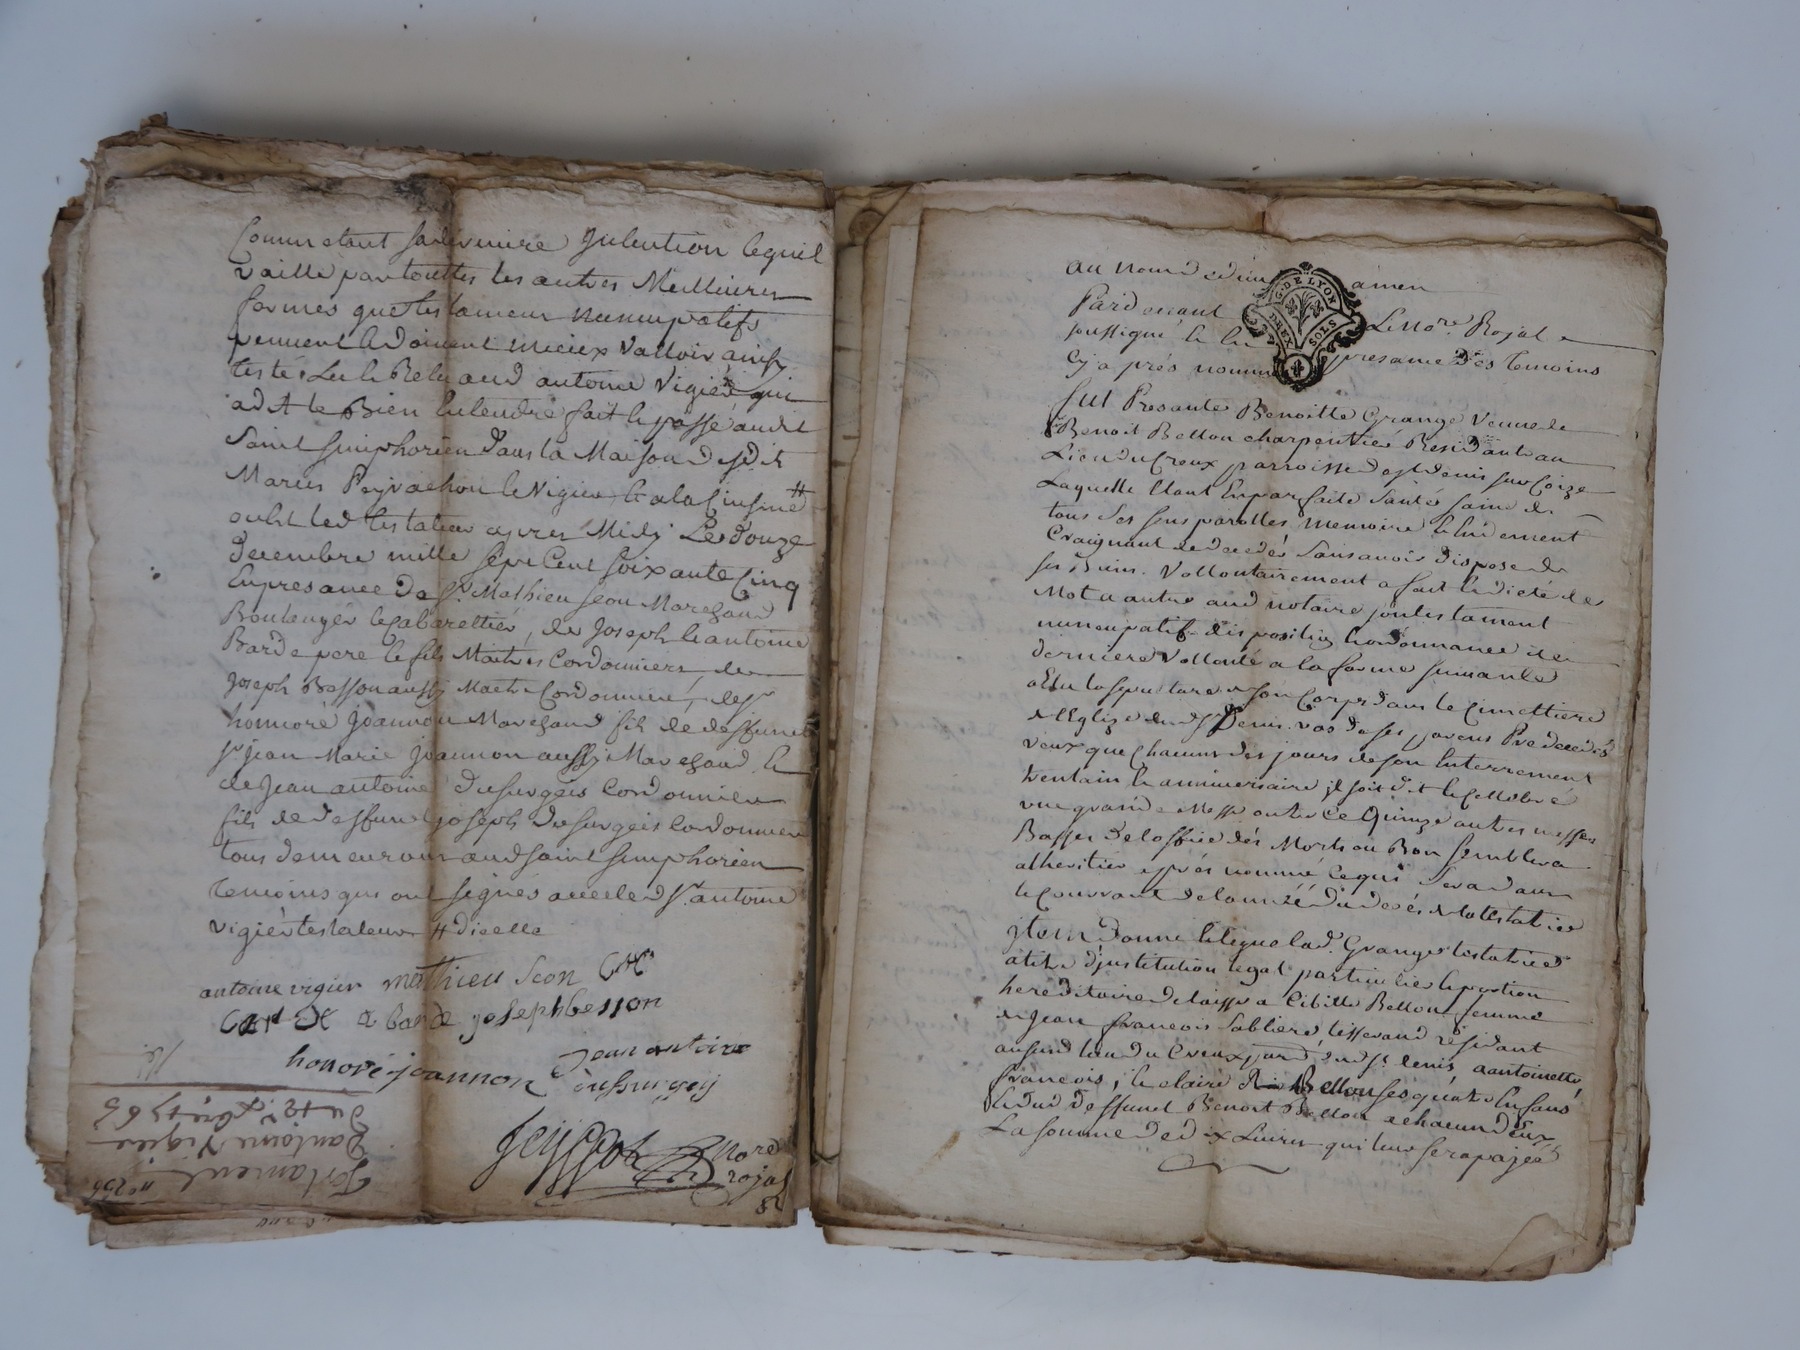 Commetant sa derniere Intention lequel
vaille par touttes les autres Meilleures
formes que testament nuncupatifs
peuvent & doivent mieux valloir, ainsi
testé, Lu & Releu aud antoine vigier, qui
a dit le Bien Entendre fait & passé audit
Saint simphorien dans la Maison desdit
Maries Peyrachon & Vigier
led testateur apres Midy Le douze
decembre mille sept Cent soixante Cinq
En presance de sr. Mathieu seon Marchand
Boulenger & Cabarettier, de joseph & antoine
Barde pere & fils Maitres Cordonniers, de
joseph Besson aussy Maitre Cordonnier, de sr
honnoré joannon Marchand fils de deffunct
sr jean Marie joannon aussy Marchand &
de jean antoine dusurgeis Cordonnier
fils de deffunct joseph dusurgeis Cordonnier
tous demeurant aud saint simphorien
temoins qui ont signés avec led sr. antoine
vigier testateur # dicelle
antoine vigier mathieu seon
Barde joseph besson
honoré joannon jean antoine
dusurgeij
Nore
rojal
Testament
dantoine Vigier
du 12e Xbre 1765
au nom de dieu amen
G. DE LYON
DEUX SOLS
Pardevant Le Nore. Royal
soussigné & En presance des temoins
Cy aprés nommés
fut Presante Benoitte Grange Veuve de
Benoit Bellon charpentier Residante au
Lieu du Creux parroisse de st denis sur Coize
Laquelle Etant En parfaite santé saine de
tous ses sens parolles, memoire & Entendement
Craignant de deceder sans avoir disposé de
ses Biens. Vollontairement a fait & dicté de
Mot a autre aud notaire son testament
nuncupatif disposition & ordonnance de
derniere Vollonté a la forme suivante
a Elu la sepulture de son Corps dans le Cimettiere
de l'Eglize dud st Denis. vas de ses parens Predecedés
veux que chacuns des jours de son Enterrement
trentain & anniversaire il soit dit & Cellebré
une grande Messe outre ce Quinze autres messes
Basses de loffice des Morts ou Bon semblera
a lheritier apprés nommé Ce qui sera dans
le Courrant de lannéé du decés de la testatrice
jtem donne & legue lad. Grange testatrice
a titre d'justitution legat particulier & portion
hereditaire delaisse a Cibille Bellon femme
de jean françois sabliere tisserand residant
au susd lieu du Creux parr. dud st. denis, a antoinette,
françois, & claire Bellon ses quatre Enfans
& dud deffunct Benoit Bellon a chacun d'Eux
La somme de dix Livres qui leur sera payéé